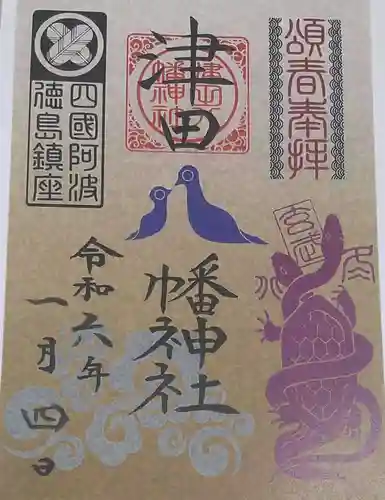 頌春奉拝
津田
八幡神社
四國阿波
徳島鎮座
令和六年
一月四日
玄武